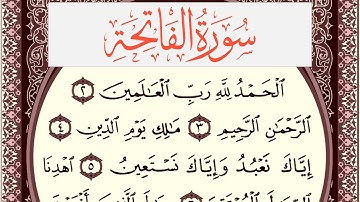 سُورَةُ الْفَاتِحَةِ
الْحَمْدُ لِلَّهِ رَبِّ الْعَالَمِينَ ٢
الرَّحْمَٰنِ الرَّحِيمِ ٣ مَالِكِ يَوْمِ الدِّينِ ٤
إِيَّاكَ نَعْبُدُ وَإِيَّاكَ نَسْتَعِينُ ٥ اهْدِنَا